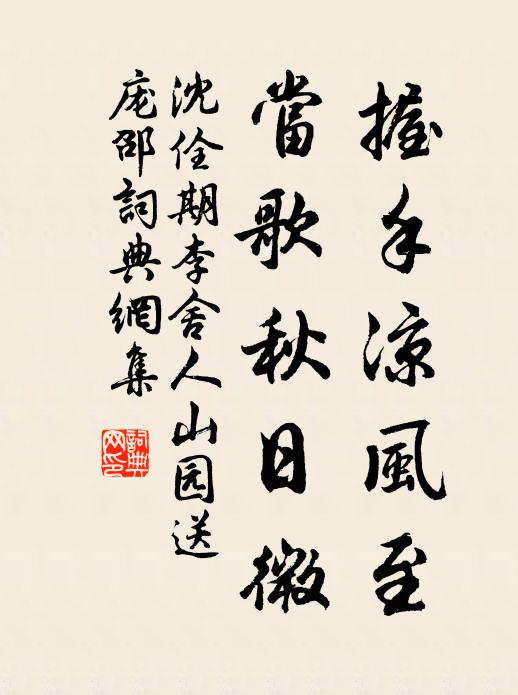 握手涼風至
當歌秋日微
沈佺期李舍人山园送
庞邵詞典網集
詞典
网印